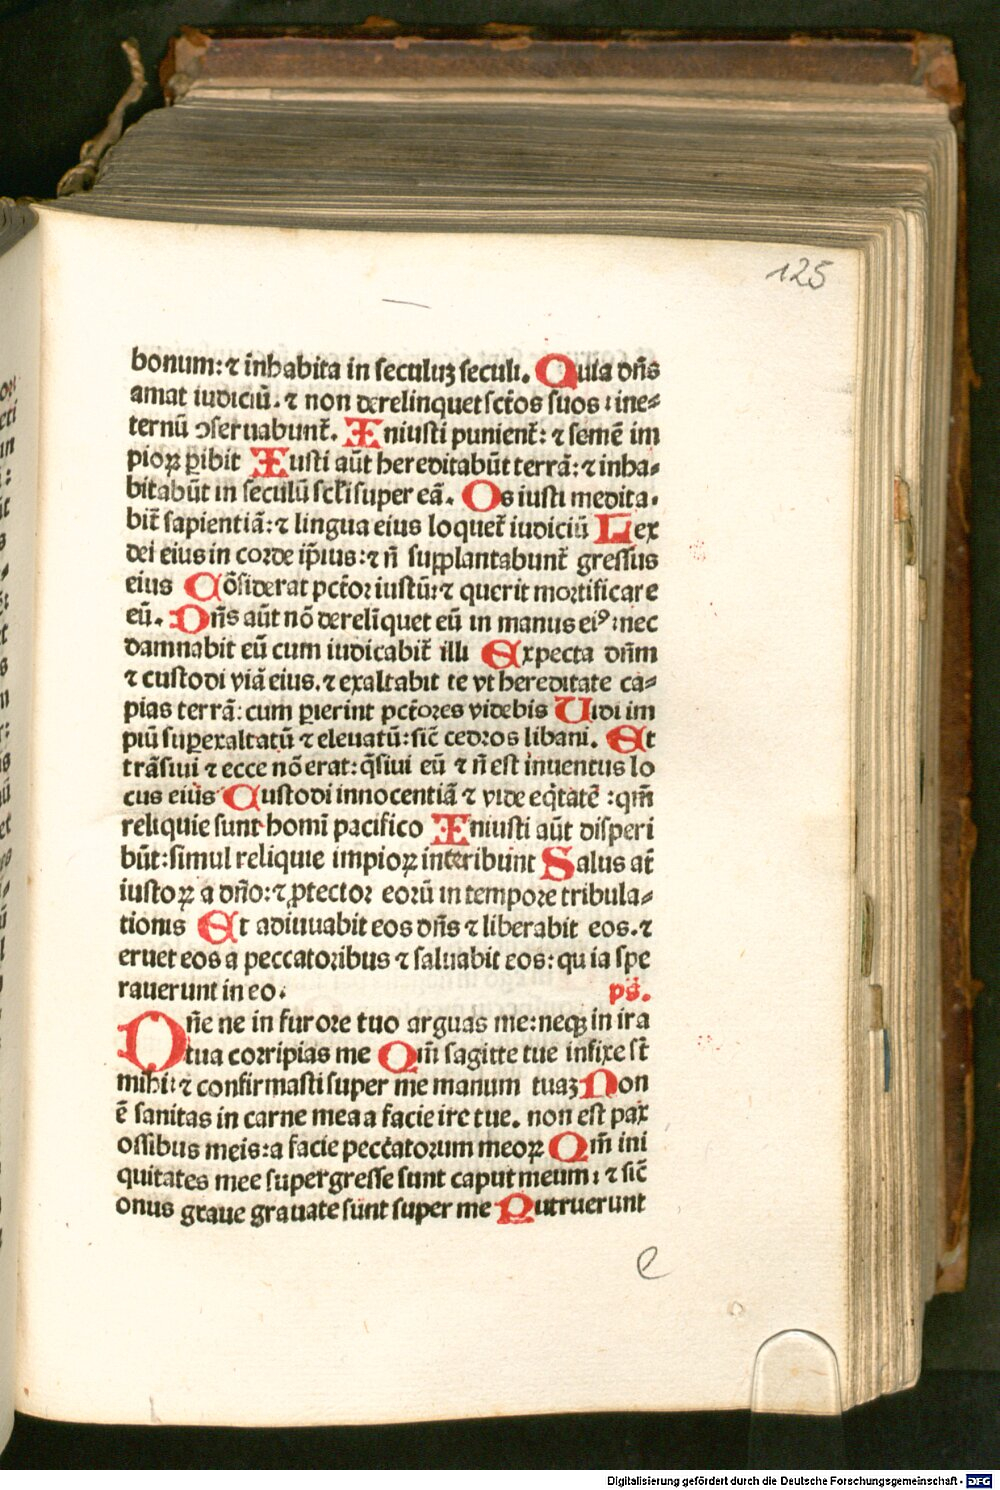 125
bonum: ⁊ inhabita in seculuꝫ seculi. Quia dñs
amat iudiciũ. ⁊ non derelinquet sct̃os suos: ine⸗
ternũ ↄseruabunt̃. Iniusti punient̃: ⁊ semẽ im
pioꝝ ꝑibit Iusti aũt hereditabũt terrã: ⁊ inha⸗
bitabũt in seculũ scl̃i super eã. Os iusti medita⸗
bit̃ sapientiã: ⁊ lingua eius loquet̃ iudiciũ Lex
dei eius in corde ip̃ius: ⁊ ñ supplantabunt̃ gressus
eius Cõsiderat pct̃or iustũ: ⁊ querit mortificare
eũ. Dñs aũt nõ derelĩquet eũ in manus eiꝰ: nec
damnabit eũ cum iudicabit̃ illi Expecta dñm
⁊ custodi viã eius. ⁊ exaltabit te vt hereditate ca⸗
pias terrã: cum ꝑierint pct̃ores videbis Uidi im
piũ suꝑexaltatũ ⁊ eleuatũ: sic̃ cedros libani. Et
trãsiui ⁊ ecce nõ erat: q̃siui eũ ⁊ ñ est inuentus lo
cus eius Custodi innocentiã ⁊ vide eq̃tatẽ: qm̃
reliquie sunt homĩ pacifico Iniusti aũt disperi
bũt: simul reliquie impioꝝ interibunt Salus at̃
iustoꝝ a dño: ⁊ ꝓtector eorũ in tempore tribula⸗
tionis Et adiuuabit eos dñs ⁊ liberabit eos. ⁊
eruet eos a peccatoribus ⁊ saluabit eos: quia spe
rauerunt in eo. ps̃.
Dñe ne in furore tuo arguas me: neqꝫ in ira
tua corripias me Qm̃ sagitte tue infixe st̃
mihi: ⁊ confirmasti super me manum tuaꝫ Non
ẽ sanitas in carne mea a facie ire tue. non est pax
ossibus meis: a facie peccatorum meoꝝ Qm̃ ini
quitates mee supergresse sunt caput meum: ⁊ sic̃
onus graue grauate sunt super me Putruerunt
e
Digitalisierung gefördert durch die Deutsche Forschungsgemeinschaft - DFG